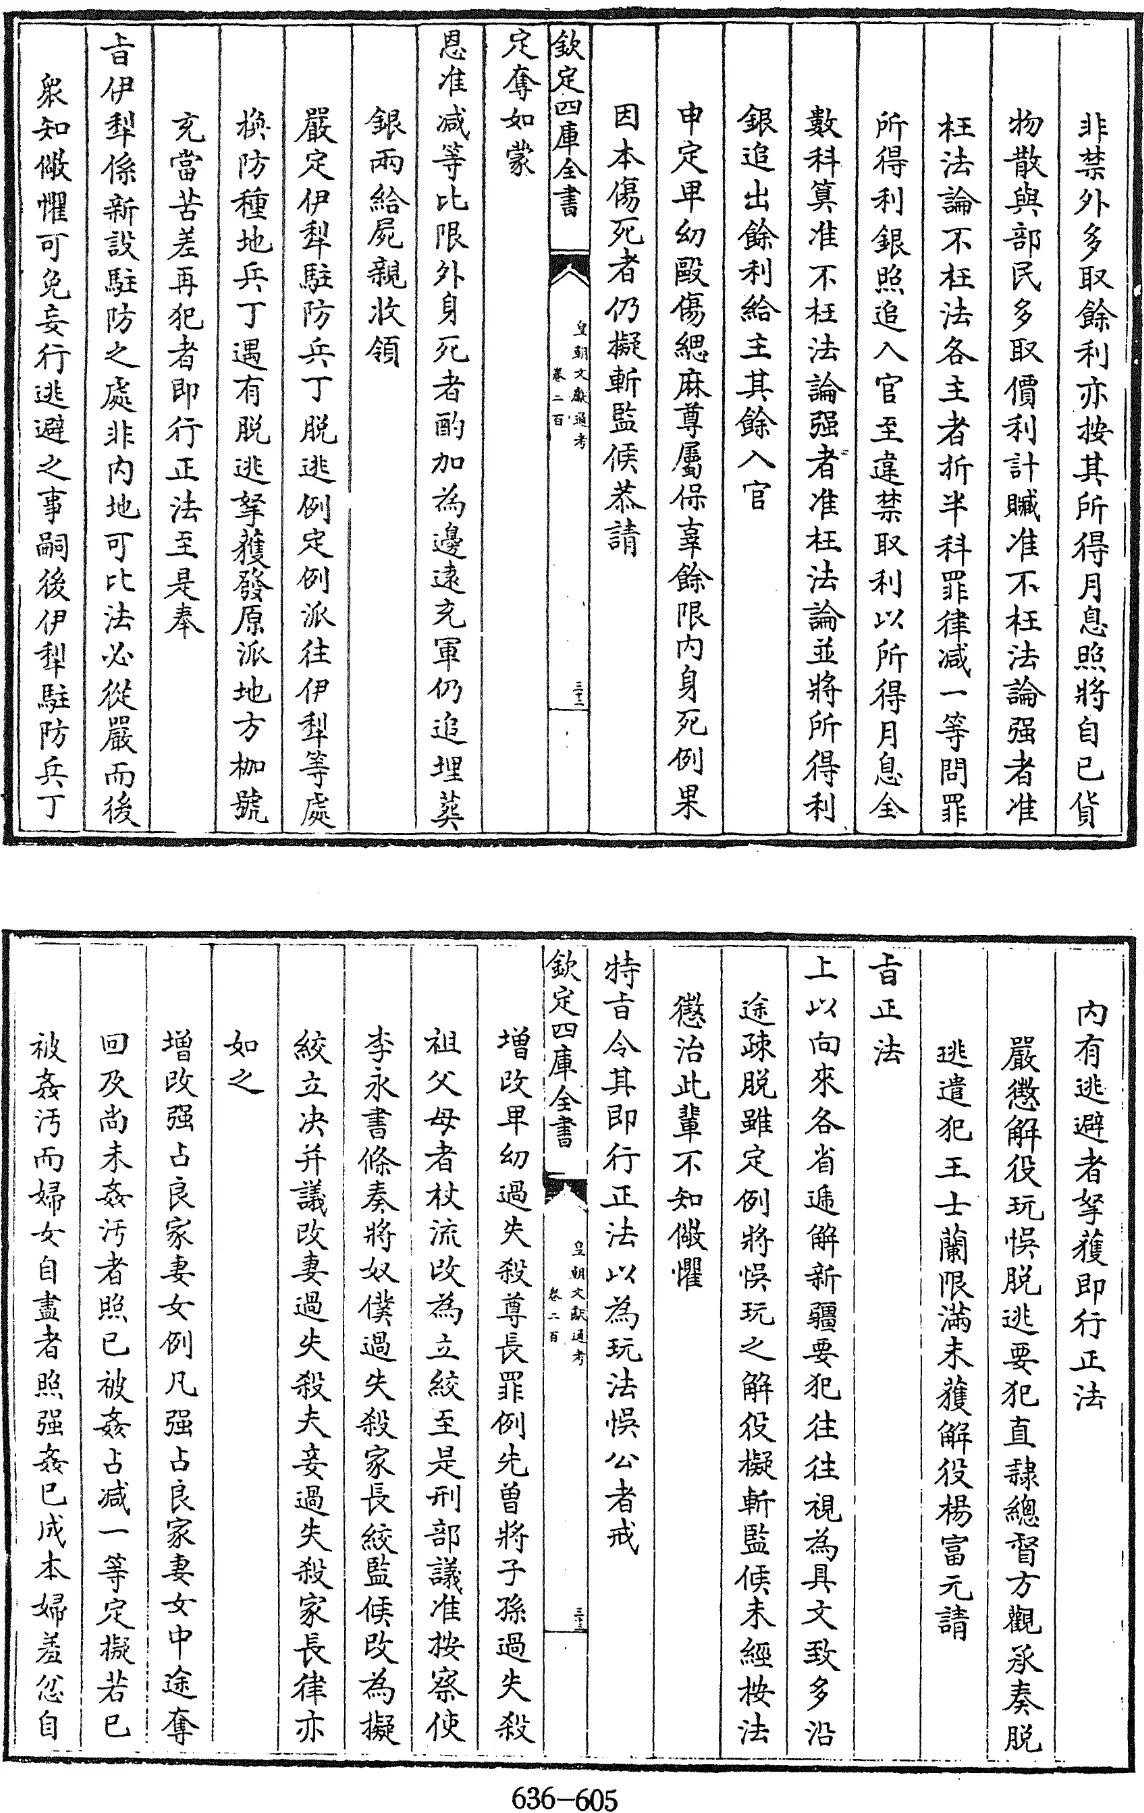 非禁外多取餘利亦按其所得月息照將自已貨
物散與部民多取價利計贓准不枉法論强者准
枉法論不枉法各主者折半科罪律减一等問罪
所得利銀照追入官至違禁取利以所得月息全
數科算准不枉法論强者准枉法論並將所得利
銀追出餘利給主其餘入官
申定卑幼毆傷緦麻尊屬保辜餘限内身死例果
因本傷死者仍擬斬監候恭請
欽定四庫全書
皇朝文獻通考
卷二百
三十二
定奪如蒙
恩准减等比限外身死者酌加為邊逺充軍仍追埋葬
銀兩給屍親收領
嚴定伊犁駐防兵丁脱逃例定例派往伊犁等處
換防種地兵丁遇有脱逃拏獲發原派地方枷號
充當苦差再犯者即行正法至是奉
㫖伊犁係新設駐防之處非内地可比法必從嚴而後
衆知儆懼可免妄行逃避之事嗣後伊犁駐防兵丁
内有逃避者拏獲即行正法
嚴懲解役玩悞脱逃要犯直隸總督方觀承奏脱
逃遣犯王士蘭限滿未獲解役楊富元請
㫖正法
上以向來各省遞解新疆要犯往往視為具文致多沿
途疎脱雖定例將悞玩之解役擬斬監候未經按法
懲治此輩不知儆懼
特㫖令其即行正法以為玩法悞公者戒
欽定四庫全書
皇朝文獻通考
卷二百
三十三
增改卑幼過失殺尊長罪例先曾將子孫過失殺
祖父母者杖流改為立絞至是刑部議准按察使
李永書條奏將奴僕過失殺家長絞監候改為擬
絞立决并議改妻過失殺夫妾過失殺家長律亦
如之
增改强占良家妻女例凡强占良家妻女中途奪
回及尚未姦汚者照已被姦占减一等定擬若已
被姦汚而婦女自盡者照强姦已成本婦羞忿自
636-605